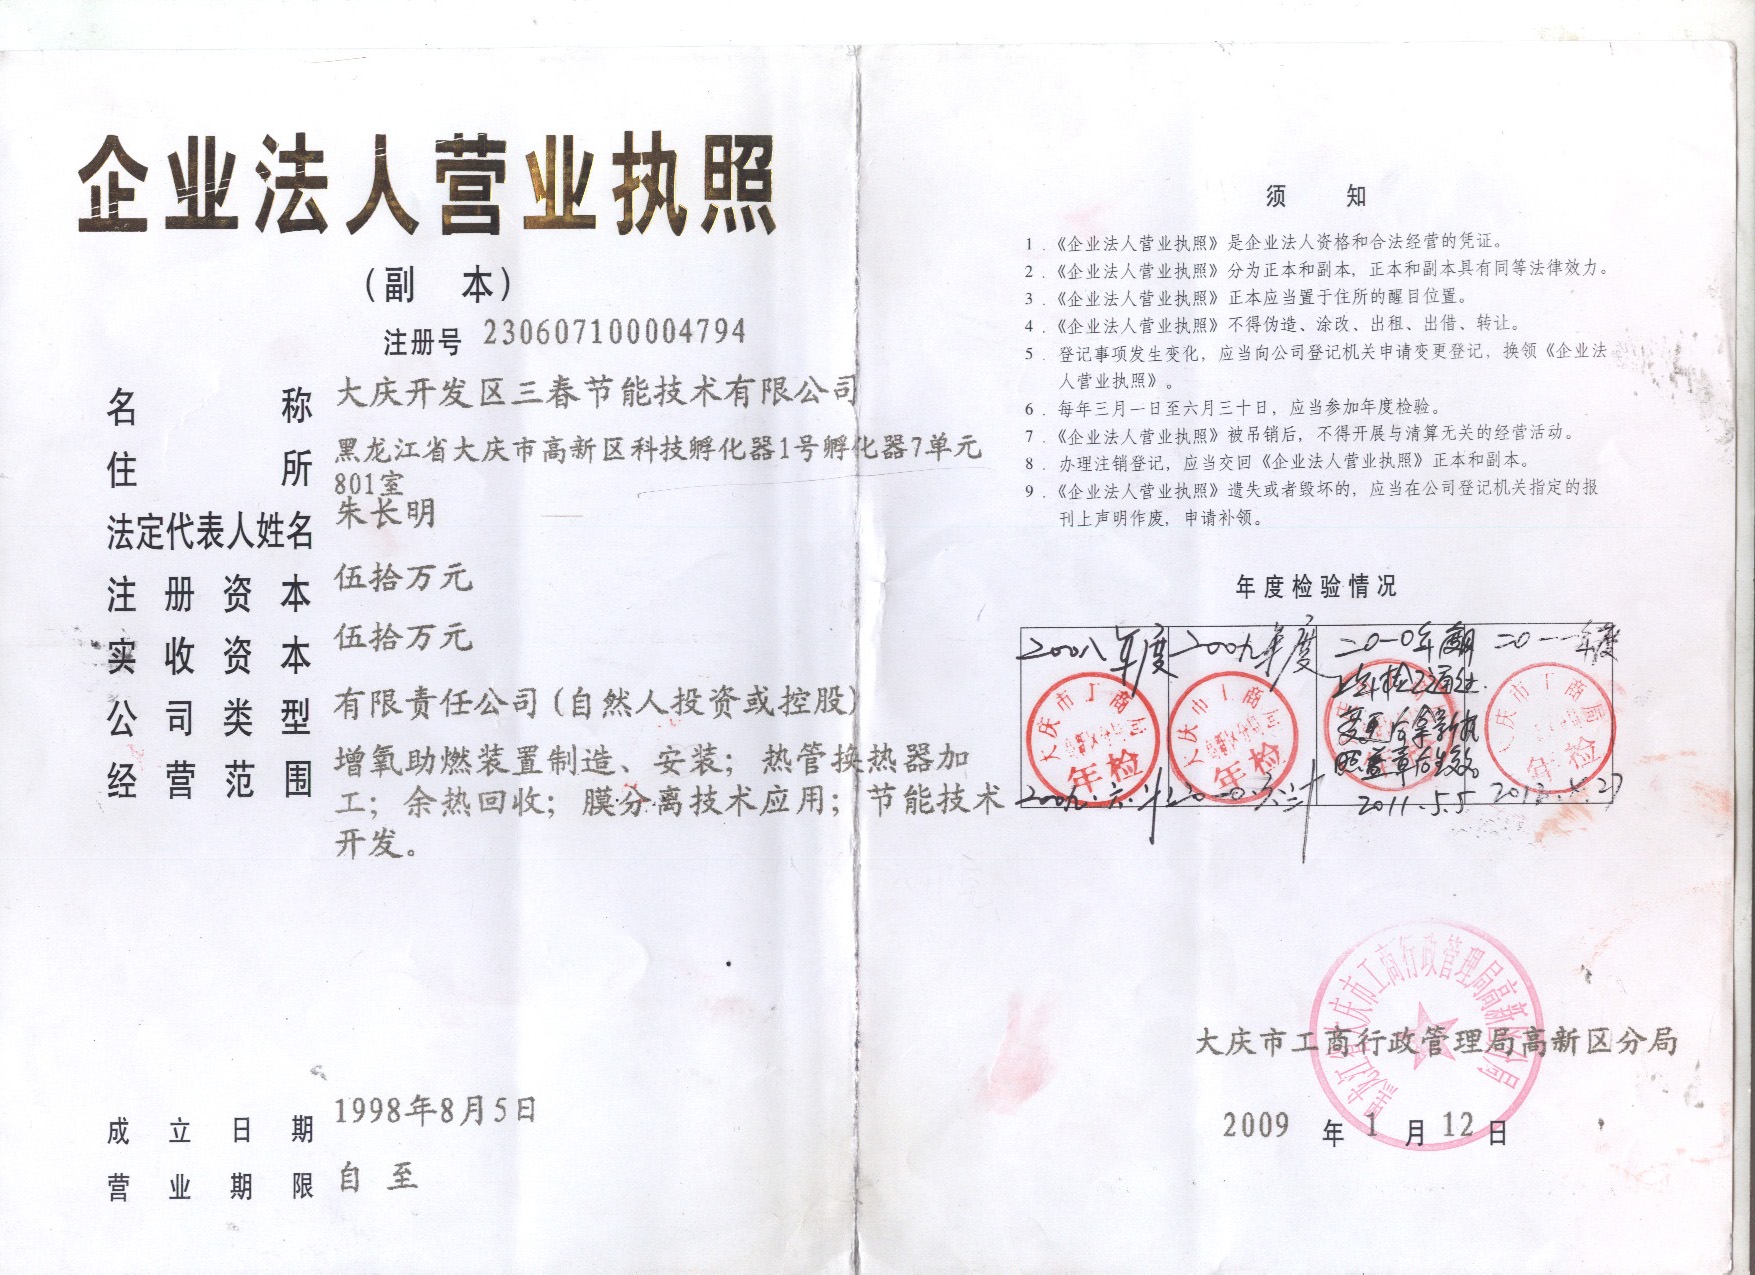 企业法人营业执照
（副 本）
注册号 230607100004794
名 称 大庆开发区三春节能技术有限公司
住 所 黑龙江省大庆市高新区科技孵化器1号孵化器7单元
801室
法定代表人姓名 朱长明
注 册 资 本 伍拾万元
实 收 资 本 伍拾万元
公 司 类 型 有限责任公司(自然人投资或控股)
经 营 范 围 增氧助燃装置制造、安装；热管换热器加
工；余热回收；膜分离技术应用；节能技术
开发。
成 立 日 期 1998年8月5日
营 业 期 限 自 至
须 知
1．《企业法人营业执照》是企业法人资格和合法经营的凭证。
2．《企业法人营业执照》分为正本和副本，正本和副本具有同等法律效力。
3．《企业法人营业执照》正本应当置于住所的醒目位置。
4．《企业法人营业执照》不得伪造、涂改、出租、出借、转让。
5．登记事项发生变化，应当向公司登记机关申请变更登记，换领《企业法
人营业执照》。
6．每年三月一日至六月三十日，应当参加年度检验。
7．《企业法人营业执照》被吊销后，不得开展与清算无关的经营活动。
8．办理注销登记，应当交回《企业法人营业执照》正本和副本。
9．《企业法人营业执照》遗失或者毁坏的，应当在公司登记机关指定的报
刊上声明作废，申请补领。
年度检验情况
二00八年度 二00九年度 二0一0年度 二0一一年度
大庆市工商局 大庆市工商局 大庆市工商局
年检 年检 年检
变更后拿新执
照盖章后生效
2011.5.5
黑龙江省大庆市工商行政管理局高新区分局
大庆市工商行政管理局高新区分局
2009 年 1 月 12 日